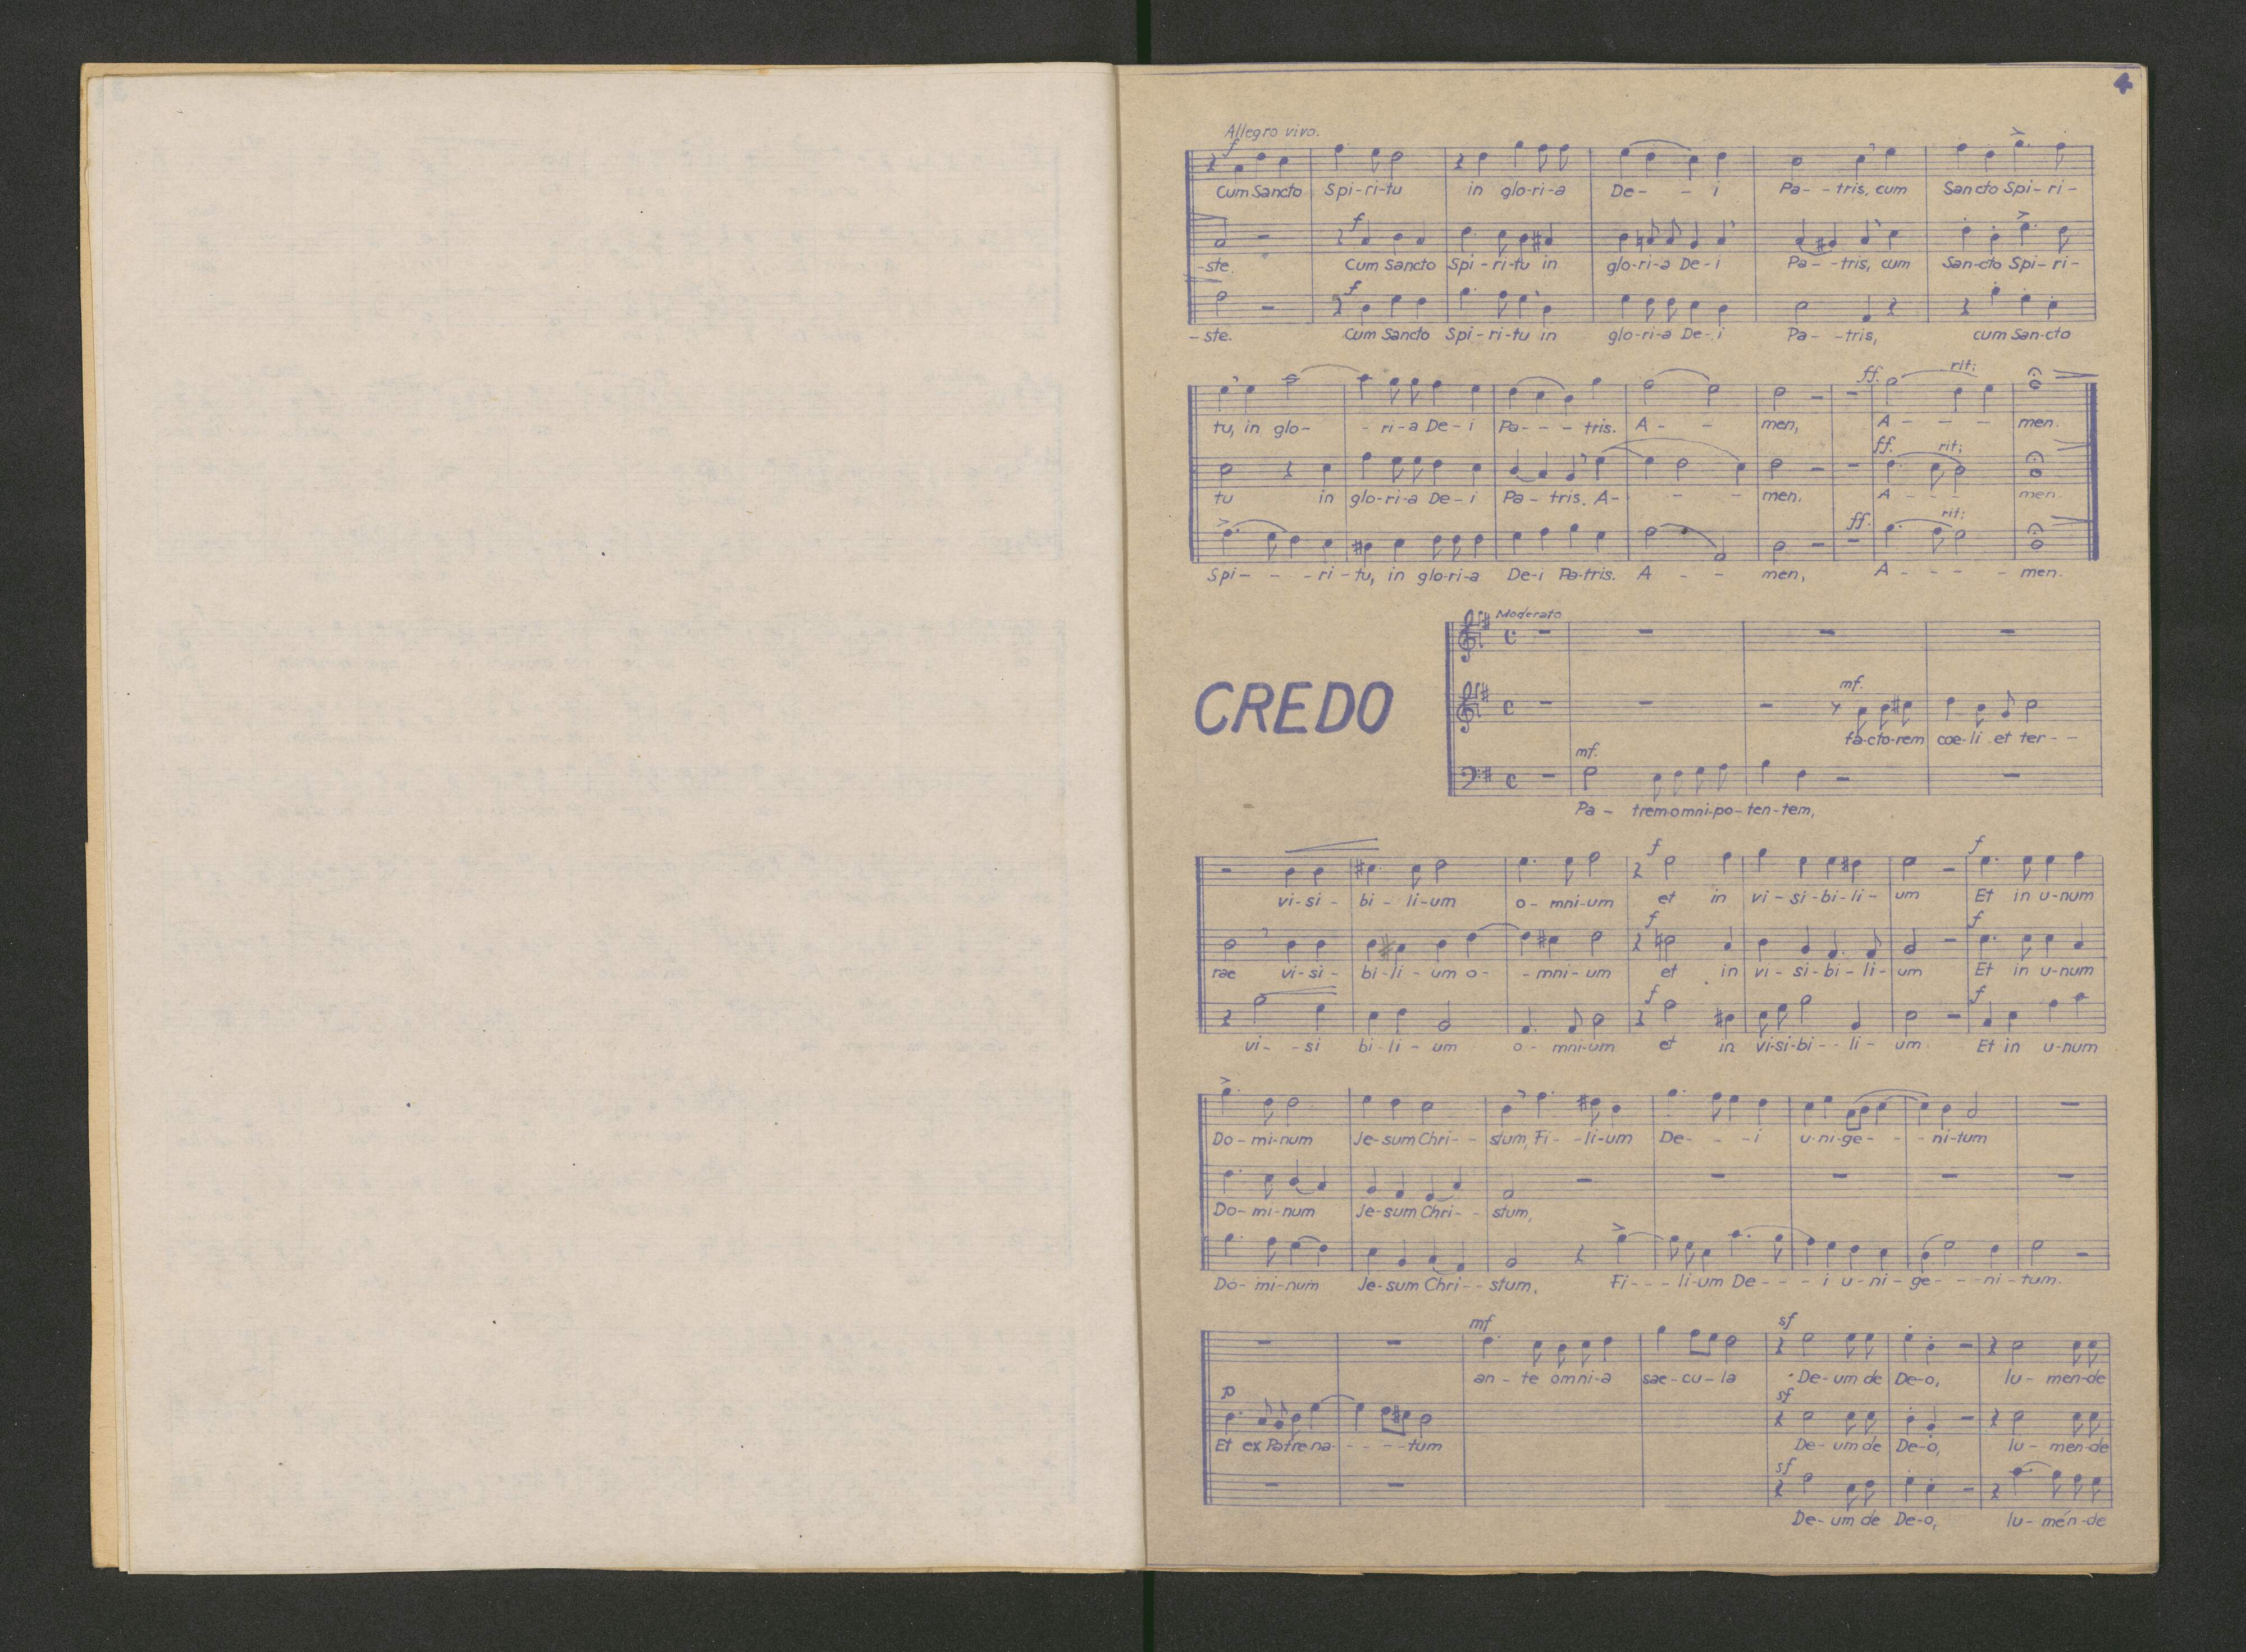 4
Allegro vivo.
f
Cum Sancto Spi-ri-tu in glo-ri-a De- - i Pa- -tris, cum Sancto Spi-ri-
f
-ste. Cum Sancto Spi-ri-tu in glo-ri-a De-i Pa- -tris, cum San-cto Spi-ri-
f
-ste. Cum Sancto Spi-ri-tu in glo-ri-a De-i Pa- -tris, cum San-cto
ff. rit:
tu, in glo- -ri-a De-i Pa- - - tris. A- - men, A - - - men.
ff. rit:
tu in glo-ri-a De-i Pa-tris. A- - - men. A - - - men
ff. rit:
Spi- - -ri-tu, in glo-ri-a De-i Pa-tris. A - - men, A- - - -men.
CREDO
Moderato
mf.
fa-cto-rem coe-li et ter- -
mf.
Pa- trem omni-po-ten-tem,
f f
vi-si- bi-li-um o-mni-um et in vi-si-bi-li- um Et in u-num
f f
rae vi-si- bi-li-um o- -mni-um et in vi-si-bi-li- um Et in u-num
f f
vi- -si bi-li-um o-mni-um et in vi-si-bi- -li- um Et in u-num
Do-mi-num Je-sum Chri- - stum, Fi- -li-um De- - -i u-ni-ge- - -ni-tum
Do-mi-num Je-sum Chri- - stum,
Do-mi-num Je-sum Chri- - stum, Fi- - -li-um De- - - i u-ni-ge- - -ni-tum.
mf sf
an-te omni-a sae-cu-la De-um de De-o, lu-men-de
p sf
Et ex Patre na- - - -tum De-um de De-o, lu-men-de
sf
De-um de De-o, lu-mén-de